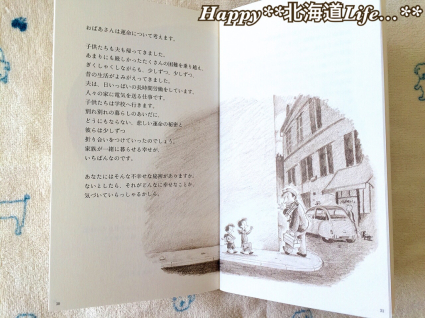 Happy**北海道Life...**
おばあさんは運命について考えます。
子供たちも夫も帰ってきました。
あまりにも厳しかったたくさんの困難を乗り越え、
ぎくしゃくしながらも、少しずつ、少しずつ、
昔の生活がよみがえってきました。
夫は、日いっぱいの長時間労働をしています。
人々の家に電気を送る仕事です。
子供たちは学校へ行きます。
別れ別れの暮らしのあいだに、
どうにもならない、悲しい運命の秘密と、
彼らは少しずつ
折り合いをつけていったのでしょう。
家族が一緒に暮らせる幸せが、
いちばんなのです。
あなたにはそんな不幸せな秘密がありますか。
ないとしたら、それがどんなに幸せなことか、
気づいていらっしゃるかしら。